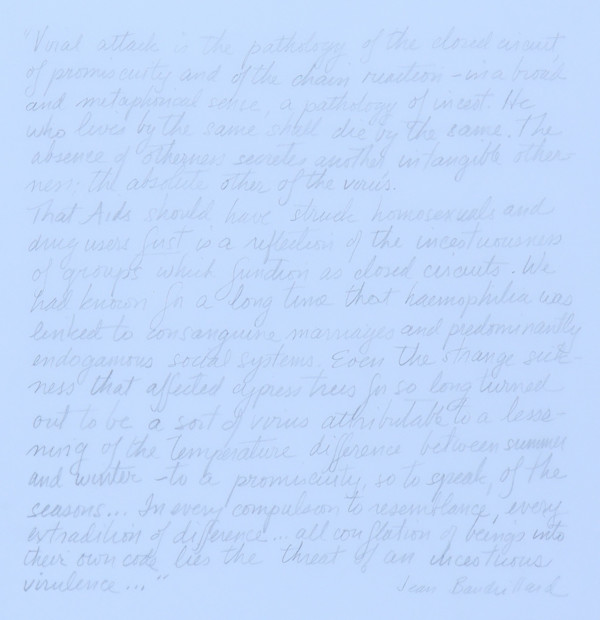 "Viral attack is the pathology of the closed circuit
of promiscuity and of the chain reaction – in a broad
and metaphorical sence, a pathology of incest. He
who lives by the same shall die by the same. The
absence of otherness secretes another intangible other-
ness: the absolute other of the virus.
That Aids should have struck homosexuals and
drug users first is a reflection of the incestuousness
of groups which function as closed circuits. We
had known for a long time that haemophilia was
linked to consanguine marriages and predominantly
endogamous social systems. Even the strange sick-
ness that affected cypress trees for so long turned
out to be a sort of virus attributable to a lesse-
ning of the temperature difference between summer
and winter – to a promiscuity, so to speak, of the
seasons... In every compulsion to resemblance, every
extradition of difference... all conflation of beings into
their own code lies the threat of an incestuous
virulence..."
Jean Baudrillard